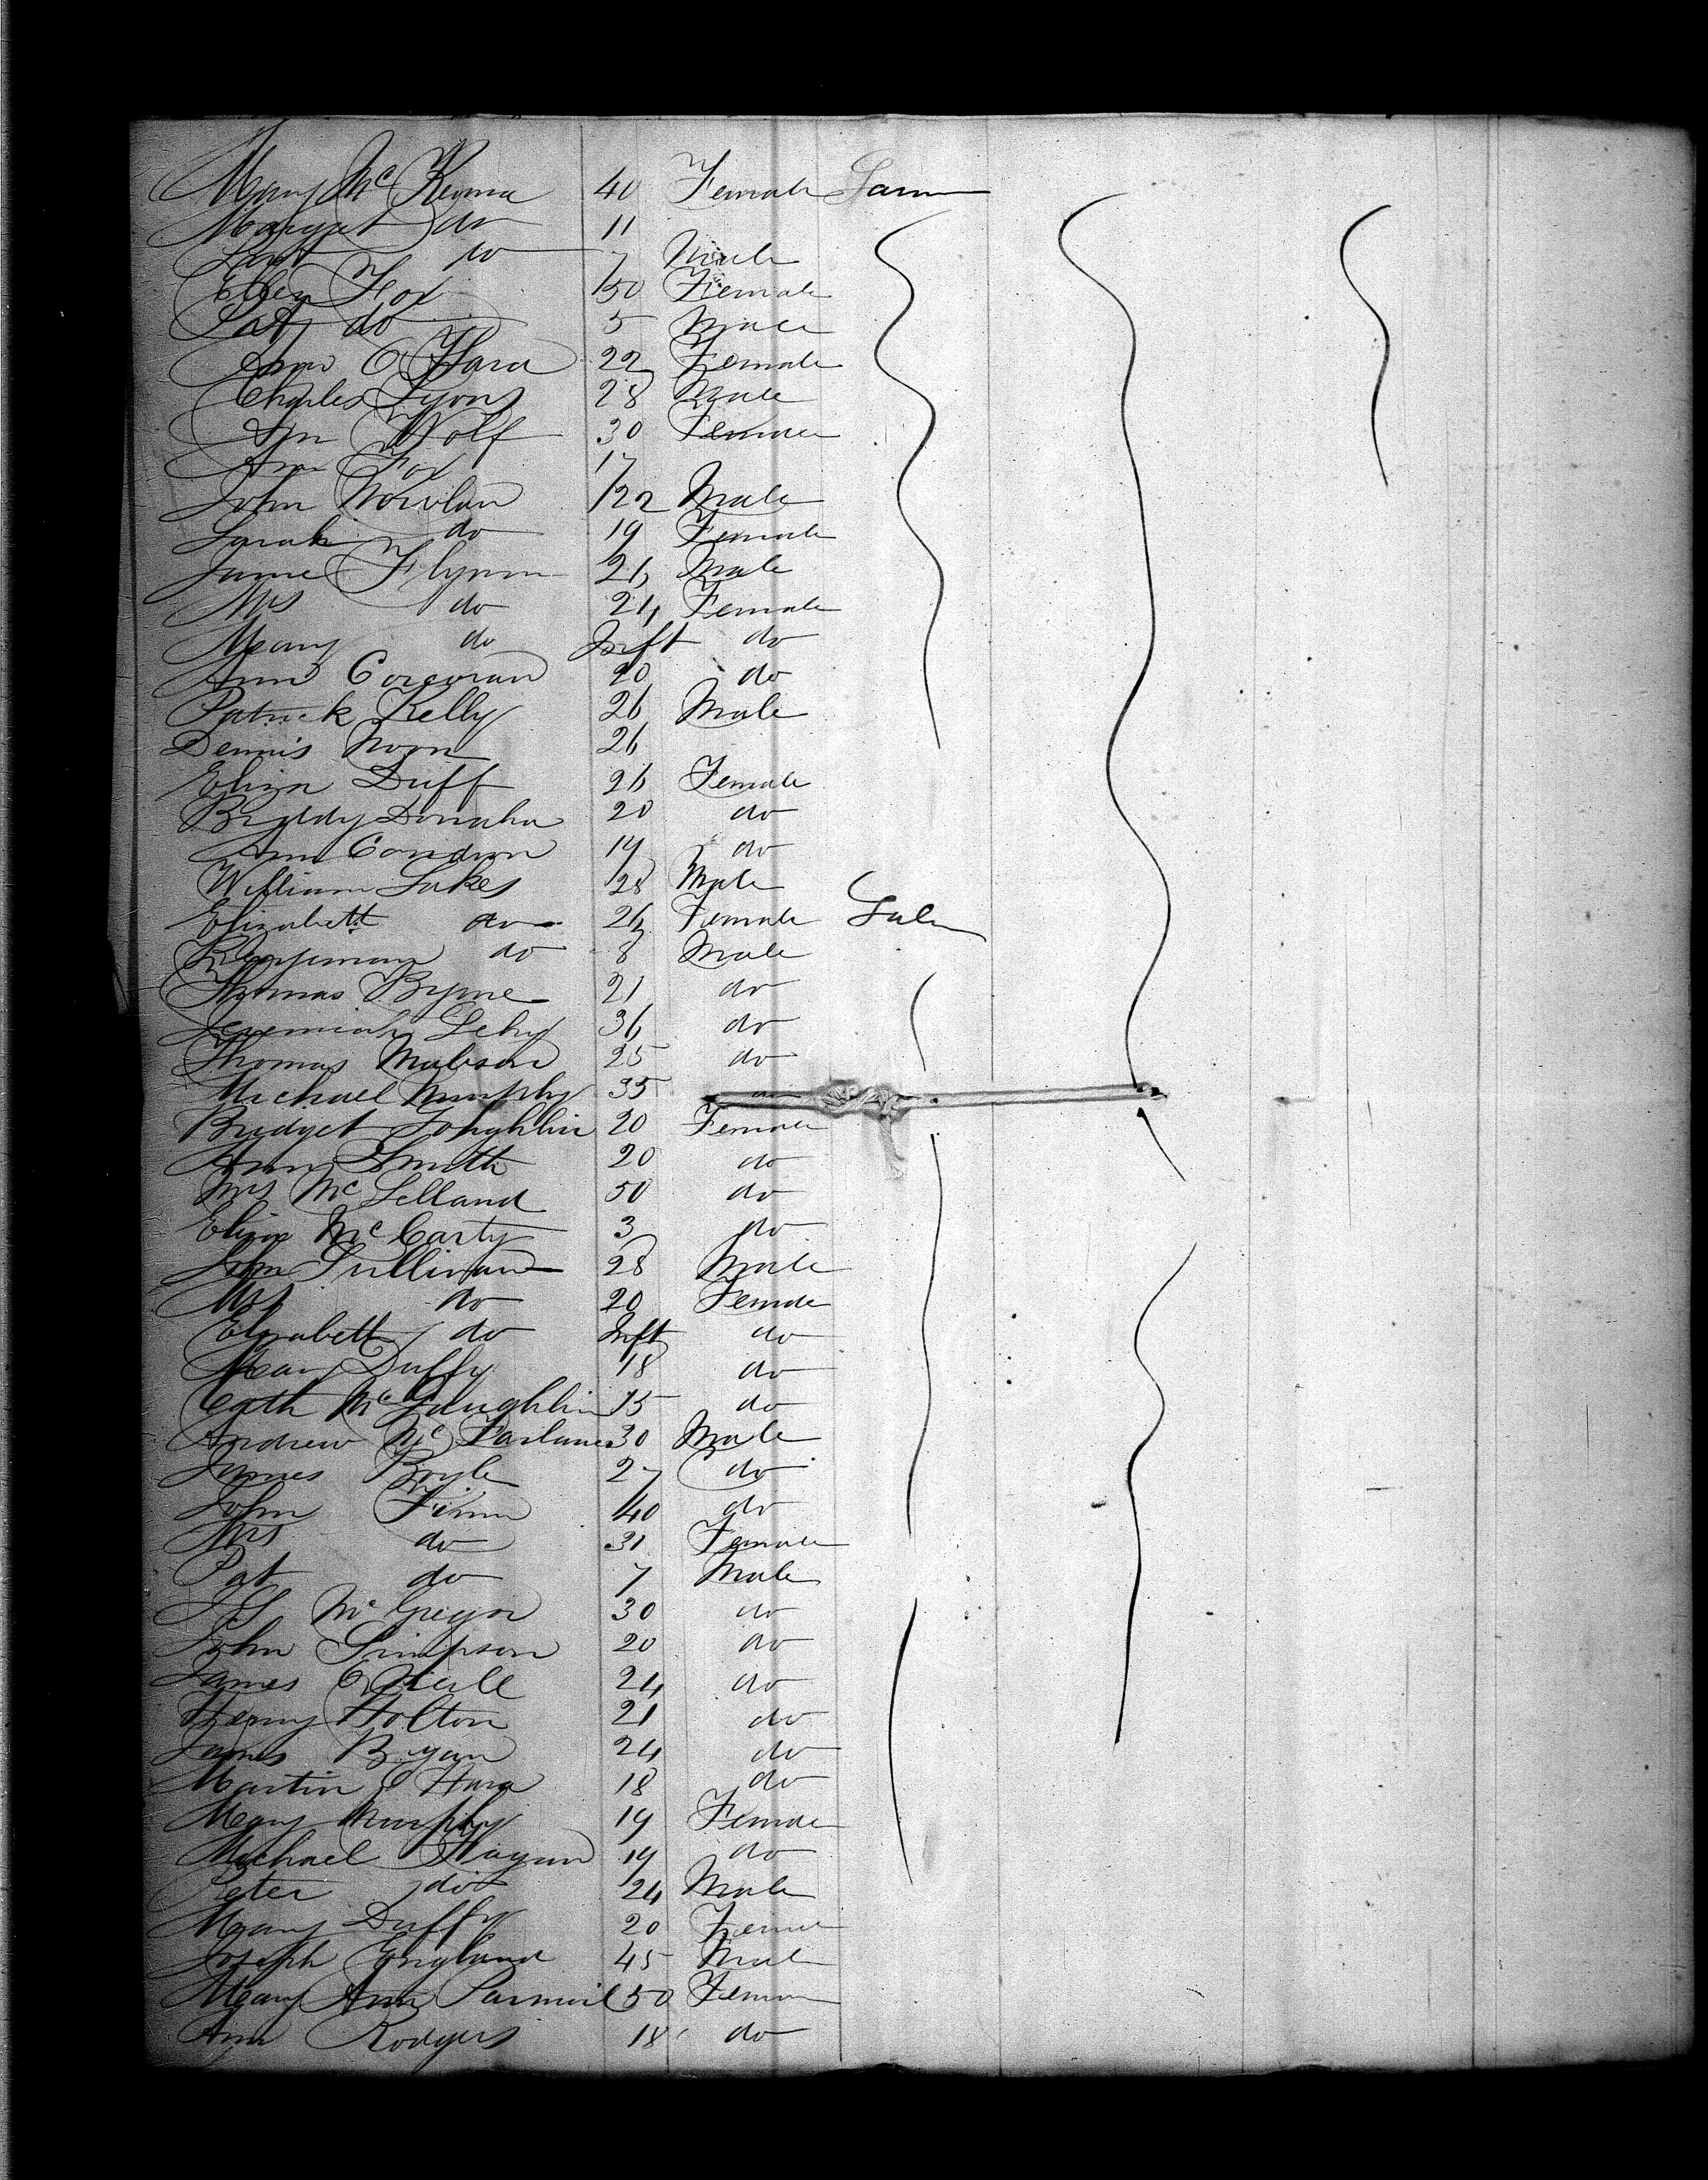 Mary McKenna 40 Female
Margret do 11
do 7 Male
Ellen Fox 50 Female
Pat do 5 Male
Ann O Hara 22 Female
Charles Lyons 28 Male
Ann Wolf 30 Female
Ann Fox 17
John Nowlan 22 Male
Sarah do 19 Female
James Flynn 26 Male
Mrs do 24 Female
Mary do Inft do
Ann Corcoran 20 do
Patrick Kelly 26 Male
Dennis Noon 26
Eliza Duff 26 Female
Briddy Donaha 20 do
Ann Condron 19 do
William Lakes 28 Male
Elizabett do 26 Female
do 8 Male
Thomas Byrne 21 do
Jeremiah Lehy 36 do
Thomas 25 do
Michael Murphy 35 do
Bridget Loughlin 20 Female
Ann Smith 20 do
Mrs McLelland 50 do
Eliza McCarty 3 do
John Sullivan 28 Male
Mrs do 20 Female
Elizabett do Inft do
Mary Duffy 18 do
Cath McLaughlin 15 do
Andrew McFarlane 30 Male
James Boyle 27 do
John Finn 40 do
Mrs do 31 Female
Pat do 7 Male
McGregor 30 do
John Simpson 20 do
James O Neill 24 do
Henry Holton 21 do
James Ryan 24 do
Martin O Hara 18 do
Mary Murphy 19 Female
Michael 19 do
Peter do 24 Male
Mary Duffy 20 Female
Joseph England 45 Male
Mary Ann 50 Female
Ann Rodgers 18 do